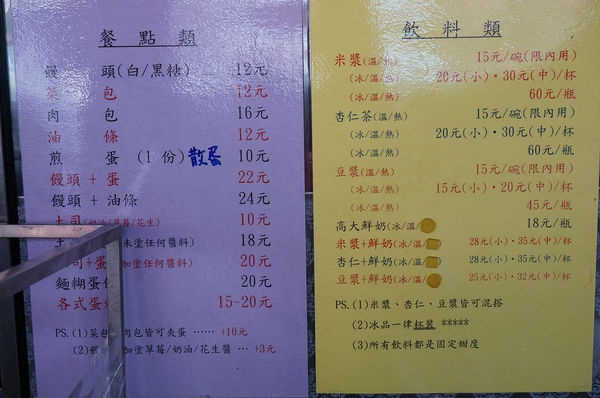 餐點類
饅頭(白/黑糖) 12元
菜包 12元
肉包 16元
油條 12元
煎蛋(1份) 散蛋 10元
饅頭+蛋 22元
饅頭+油條 24元
土司(奶油/草莓/花生) 10元
土 未塗任何醬料) 18元
司+蛋 加塗任何醬料) 20元
麵糊蛋 20元
各式蛋 15~20元
PS.(1)菜包 肉包皆可夾蛋 …… +10元
(2)饅 加塗草莓/奶油/花生醬 … +3元
飲料類
米漿(溫/熱) 15元/碗(限內用)
(冰/溫/熱) 20元(小)·30元(中)/杯
(冰/溫/熱) 60元/瓶
杏仁茶(溫/熱) 15元/碗(限內用)
(冰/溫/熱) 20元(小)·30元(中)/杯
(冰/溫/熱) 60元/瓶
豆漿(溫/熱) 15元/碗(限內用)
(冰/溫/熱) 15元(小)·20元(中)/杯
(冰/溫/熱) 45元/瓶
高大鮮奶(冰/溫/ 18元/瓶
米漿+鮮奶(冰/溫/ 28元(小)·35元(中)/杯
杏仁+鮮奶(冰/溫/ 28元(小)·35元(中)/杯
豆漿+鮮奶(冰/溫/ 25元(小)·32元(中)/杯
PS.(1)米漿、杏仁、豆漿皆可混搭
(2)冰品一律杯裝 *****
(3)所有飲料都是固定甜度